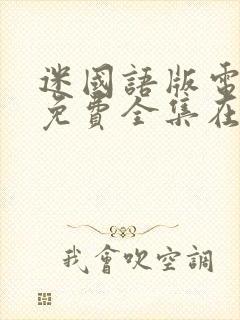 迷國語版電
免費全集在
我會吹空調